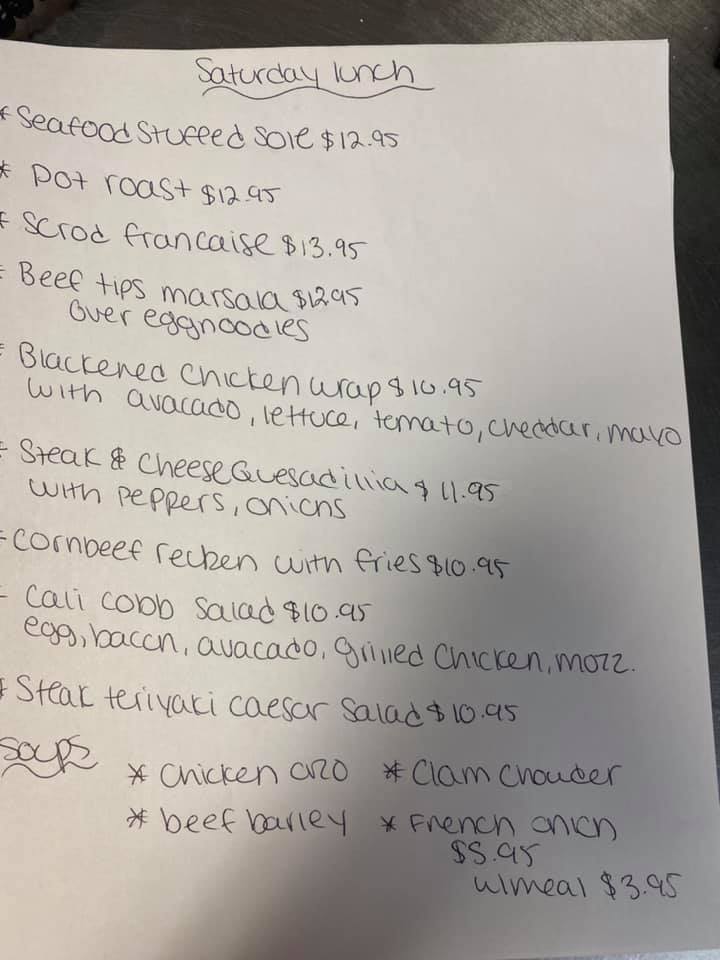 Saturday lunch
* Seafood Stuffed Sole $12.95
* Pot roast $12.95
* Scrod francaise $13.95
* Beef tips marsala $12.95
over eggnoodles
* Blackened Chicken wrap $10.95
with avacado, lettuce, temato, cheddar, mayo
* Steak & Cheese Quesadillia $11.95
with peppers, onions
* cornbeef reuben with fries $10.95
* Cali cobb salad $10.95
egg, bacon, avacado, grilled chicken, mozz.
* Steak teriyaki caesar salad $10.95
Soups
* Chicken orzo * Clam chowder
* beef barley * French onion
$5.95
w/meal $3.95